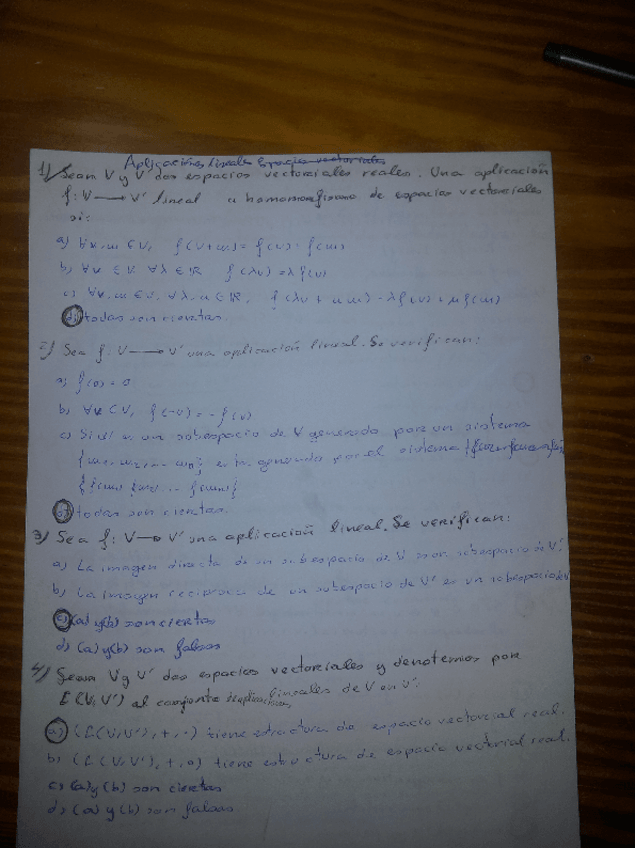 Aplicaciones lineales Espacios vectoriales
1) Sean V y V' dos espacios vectoriales reales. Una aplicación
f: V → V' lineal u homomorfismo de espacios vectoriales
si:
a) ∀v,w ∈ V, f(v+w) = f(v)+f(w)
b) ∀v ∈ V ∀λ ∈ ℝ f(λv) = λf(v)
c) ∀v,w ∈ V, ∀λ,μ ∈ ℝ, f(λv + μw) = λf(v) + μf(w)
d) todas son ciertas.
2) Sea f: V → V' una aplicación lineal. Se verifican:
a) f(0) = 0
b) ∀v ∈ V, f(-v) = -f(v)
c) Si es un subespacio de V generado por un sistema
generado por el sistema
d) todas son ciertas.
3) Sea f: V → V' una aplicación lineal. Se verifican:
a) La imagen directa de un subespacio de V es un subespacio de V'.
b) La imagen reciproca de un subespacio de V' es un subespacio
c) (a) y (b) son ciertas
d) (a) y (b) son falsas
4) Sean V y V' dos espacios vectoriales y denotemos por
L(V,V') al conjunto lineales de V en V'.
a) (L(V,V'),+,·) tiene estructura de espacio vectorial real.
b) (L(V,V'),+,o) tiene estructura de espacio vectorial real.
c) (a) y (b) son ciertas
d) (a) y (b) son falsas